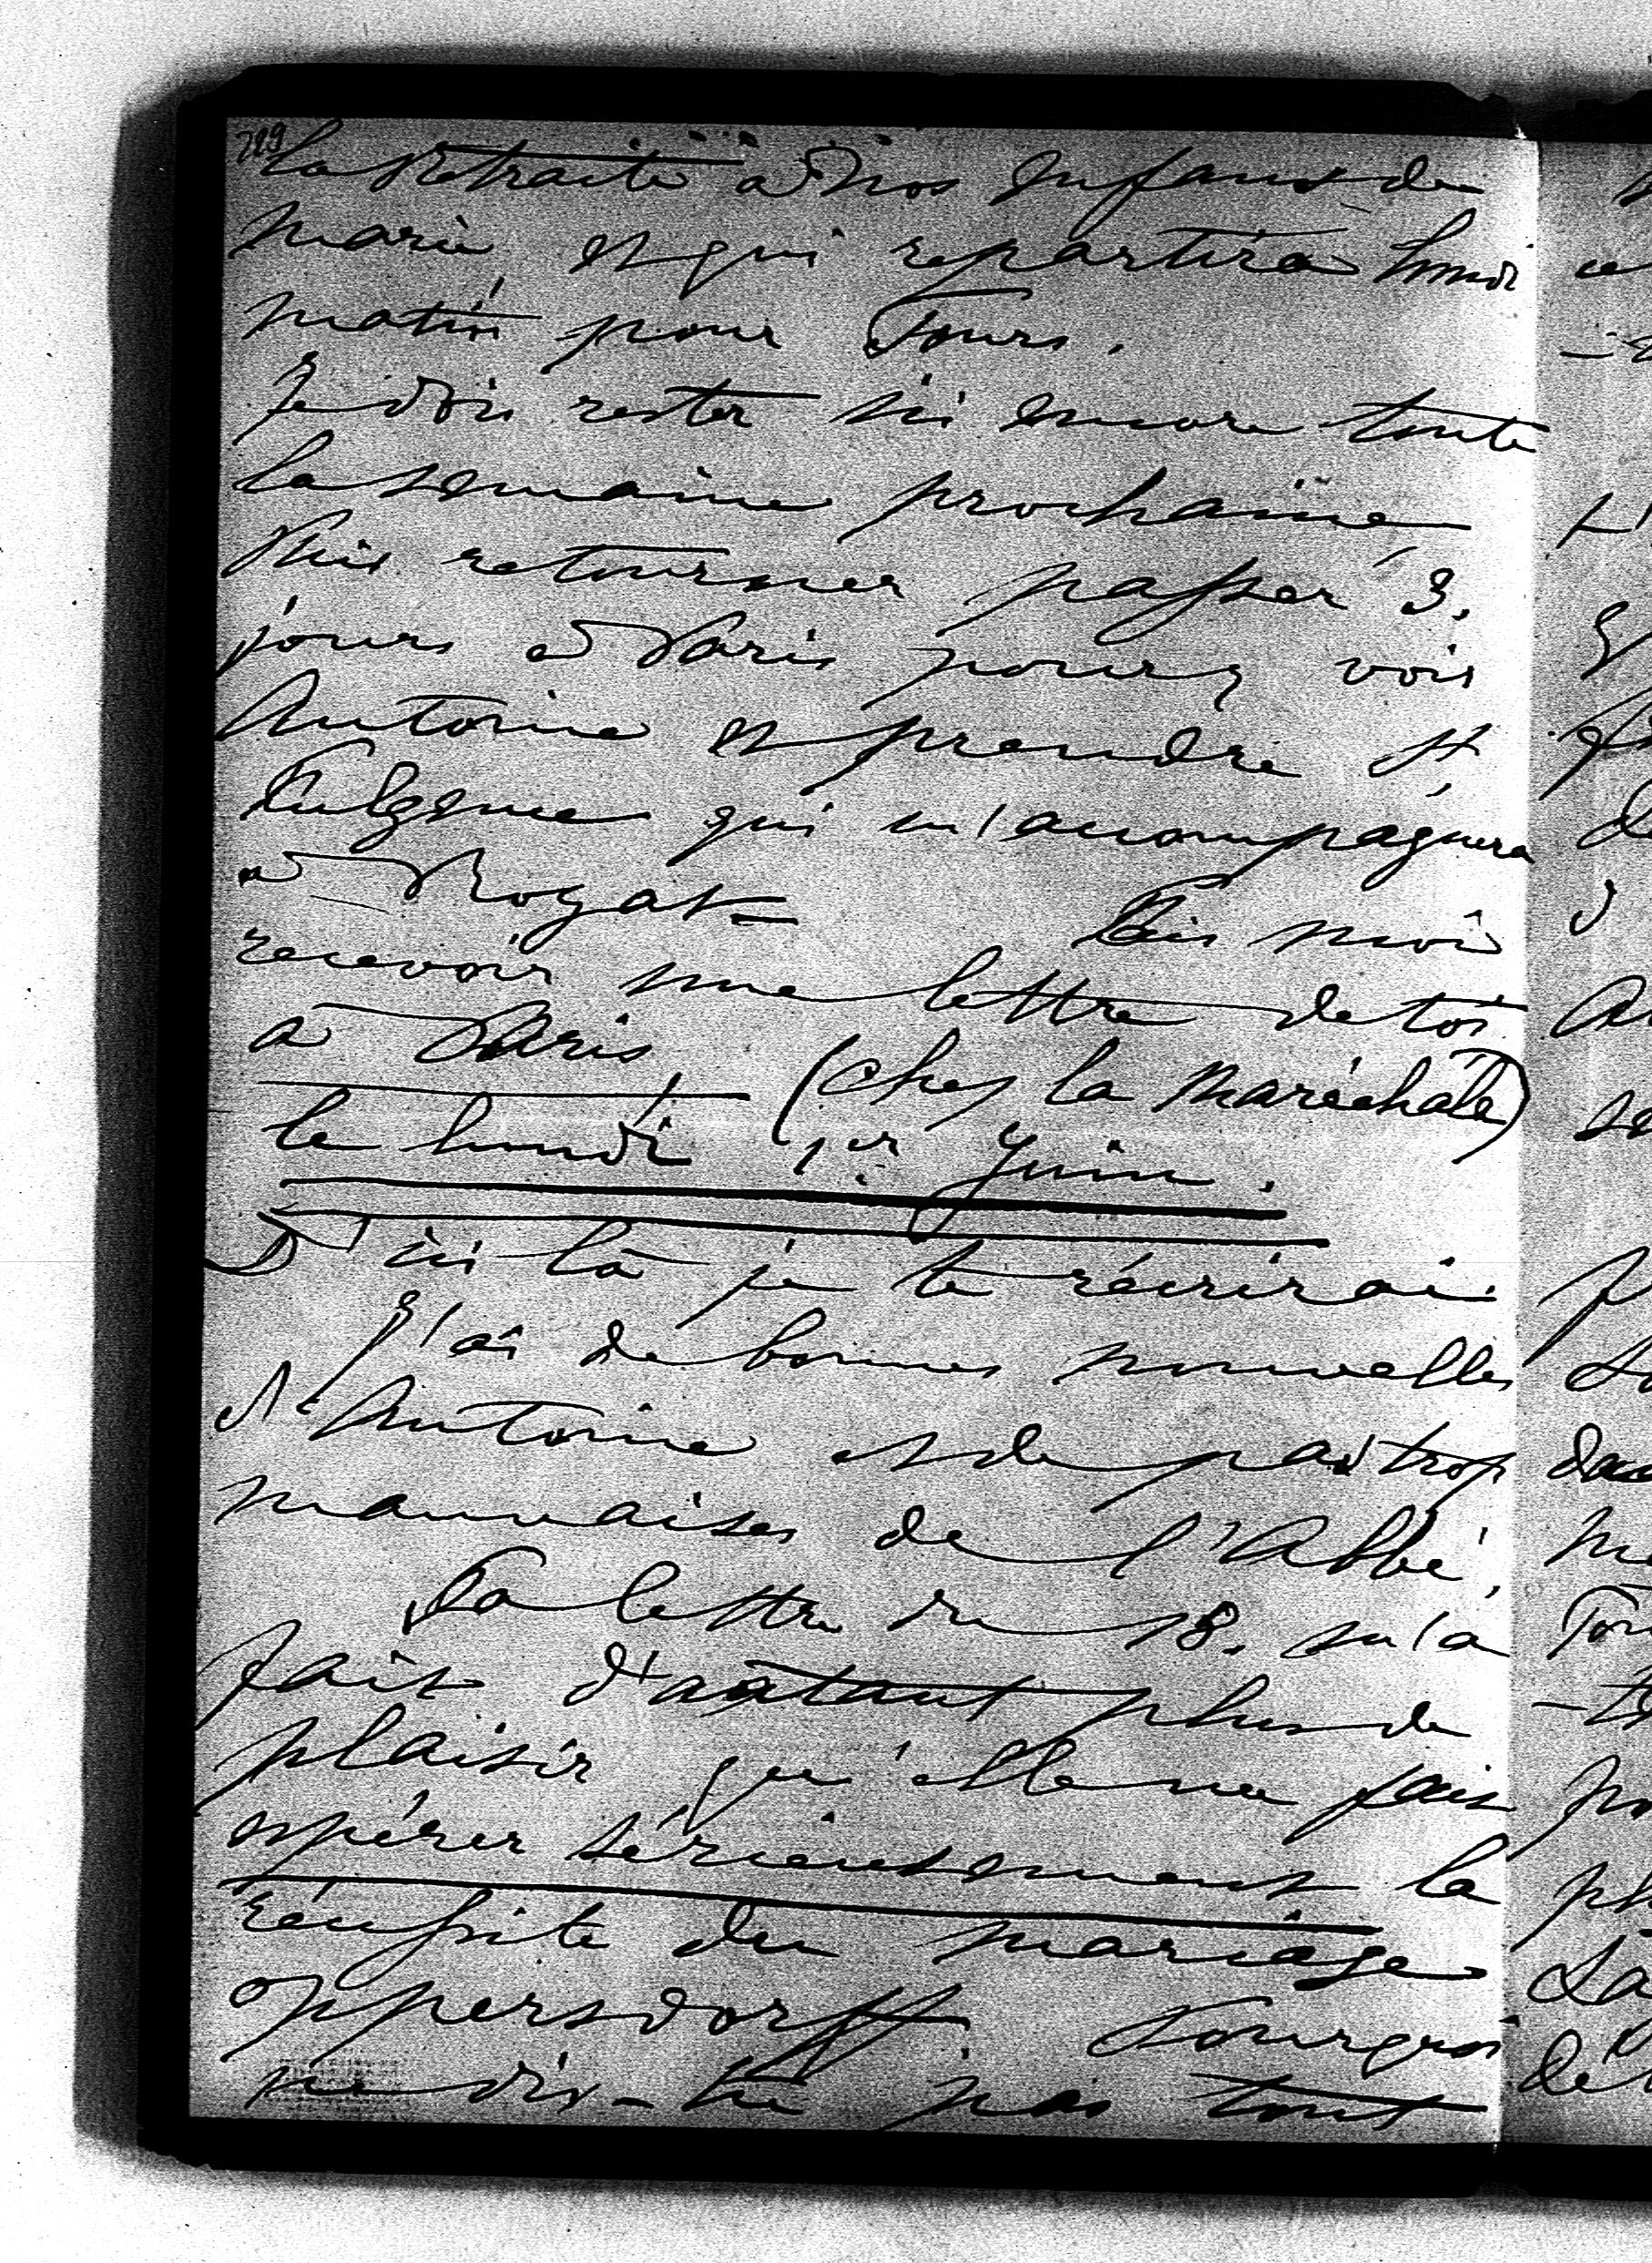 729
la retraite à nos Enfants de
Marie, et qui repartira lundi
matin pour Tours.
Je dois rester ici encore toute
la semaine prochaine
Puis retourner passer 3.
jours à Paris pour y voir
Antoine et prendre St
Fulgence qui m'accompagnera
à Royat =
Fais moi
recevoir une lettre de toi
à Paris (chez la Maréchale)
le lundi 1er Juin.
D'ici là je te récrirai.
J'ai de bonnes nouvelles
d'Antoine et de pas trop
mauvaises de l'Abbé.
Ta lettre du 18. m'a
fait d'autant plus de
plaisir qu'elle me fait
espérer sérieusement la
réussite du mariage
Oppersdorff. Pourquoi
ne dis-tu pas tout